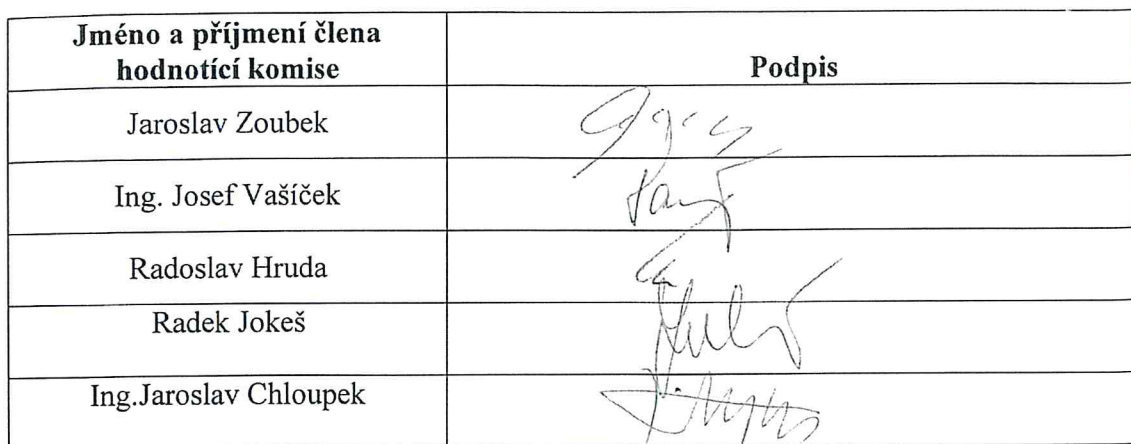 Jméno a příjmení člena
hodnotící komise
Podpis
Jaroslav Zoubek
Ing. Josef Vašíček
Radoslav Hruda
Radek Jokeš
Ing.Jaroslav Chloupek